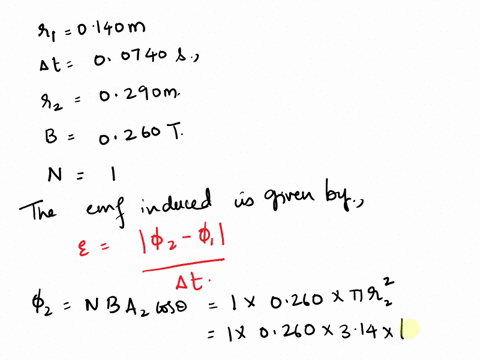 r₁ = 0.140m
Δt = 0.0740 s.,
r₂ = 0.290m.
B = 0.260 T.
N = 1
The emf induced is given by.,
ε = |ϕ₂ - ϕ₁| / Δt.
ϕ₂ = N B A₂ cosθ = 1 × 0.260 × π r₂²
= 1 × 0.260 × 3.14 × (